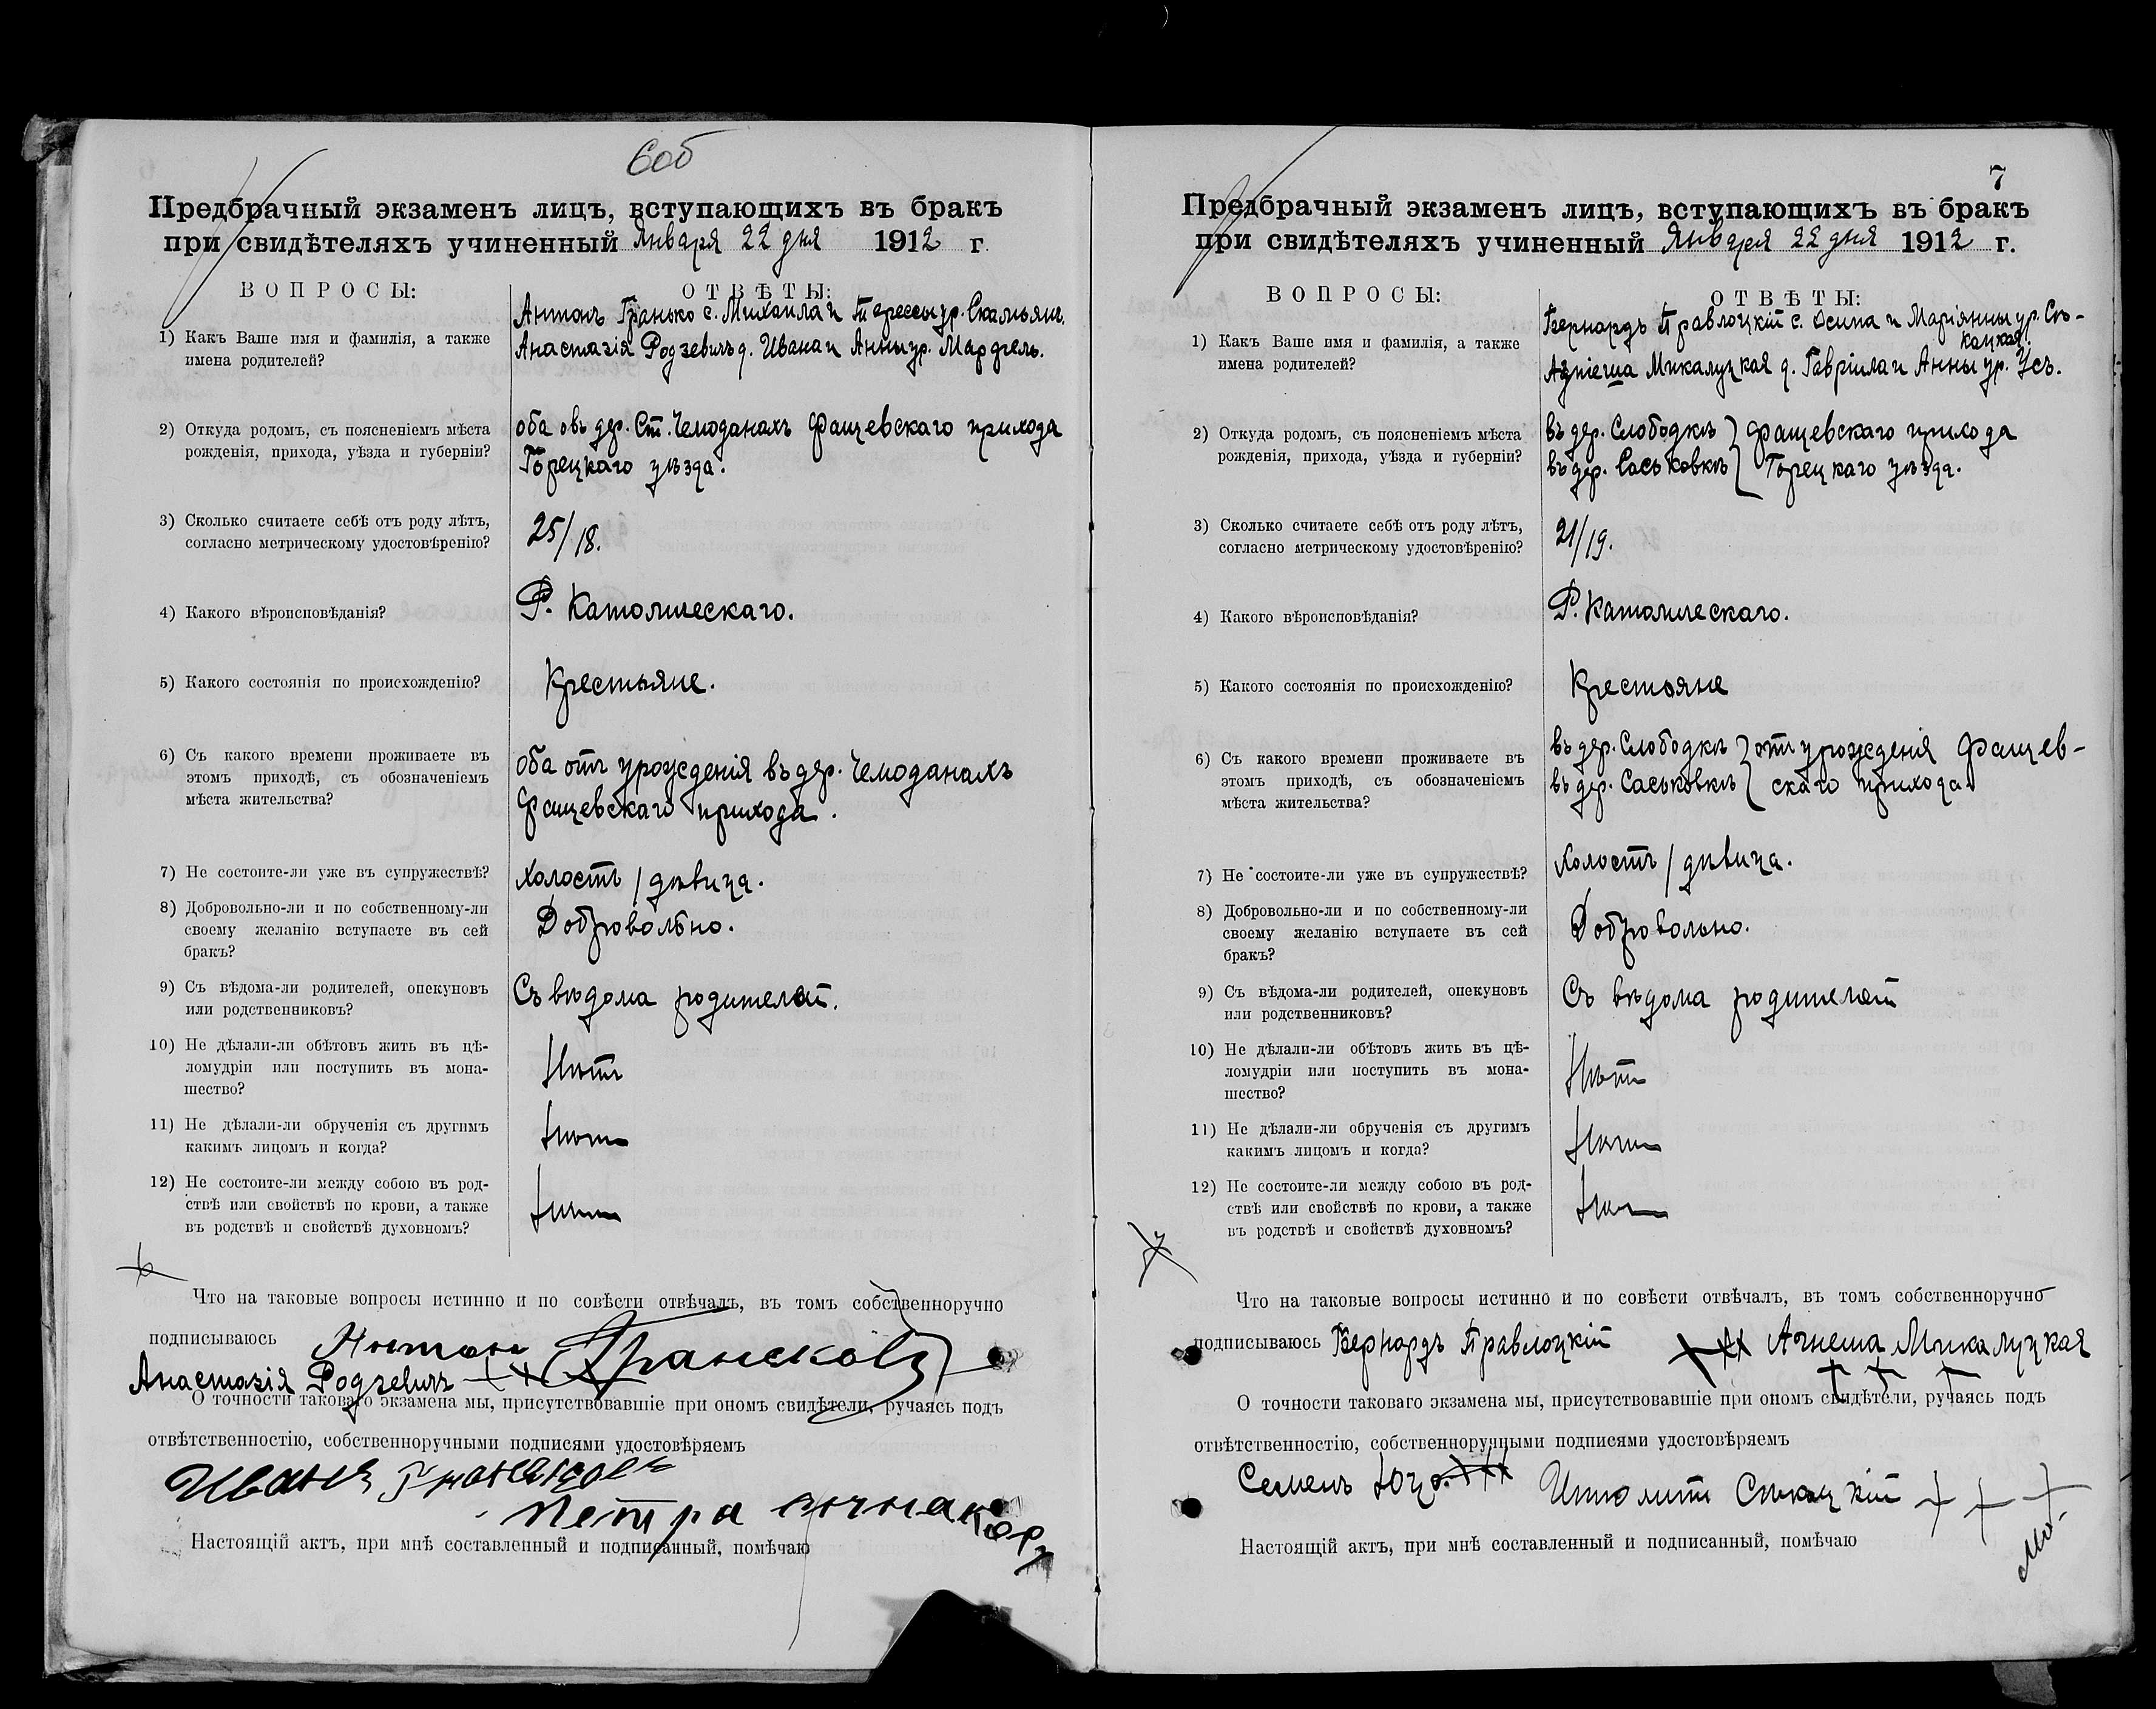 6об
Предбрачный экзаменъ лицъ, вступающихъ въ бракъ
при свидѣтеляхъ учиненный Января 22 дня 1912 г.
ВОПРОСЫ:
ОТВѢТЫ:
1) Какъ Ваше имя и фамилія, а также
имена родителей?
Антонъ Гранько с. Михаила и Терессы ур.
Анастазія Родзевичъ д. Ивана и Анны ур.
2) Откуда родомъ, съ поясненіемъ мѣста
рожденія, прихода, уѣзда и губерніи?
оба въ дер. Ст. Чемоданахъ Фащевскаго прихода
Горецкаго уѣзда.
3) Сколько считаете себѣ отъ роду лѣтъ,
согласно метрическому удостовѣренію?
25/18.
4) Какого вѣроисповѣданія?
Р. Католическаго.
5) Какого состоянія по происхожденію?
Крестьяне.
6) Съ какого времени проживаете въ
этомъ приходѣ, съ обозначеніемъ
мѣста жительства?
оба отъ урожденія въ дер. Чемоданахъ
Фащевскаго прихода.
7) Не состоите-ли уже въ супружествѣ?
Холостъ / дѣвица.
8) Добровольно-ли и по собственному-ли
своему желанію вступаете въ сей
бракъ?
Добровольно.
9) Съ вѣдома-ли родителей, опекуновъ
или родственниковъ?
Съ вѣдома родителей.
10) Не дѣлали-ли обѣтовъ жить въ цѣ-
ломудріи или поступить въ мона-
шество?
Нѣтъ
11) Не дѣлали-ли обрученія съ другимъ
какимъ лицомъ и когда?
Нѣтъ
12) Не состоите-ли между собою въ род-
ствѣ или свойствѣ по крови, а также
въ родствѣ и свойствѣ духовномъ?
Нѣтъ
Что на таковые вопросы истинно и по совѣсти отвѣчалъ, въ томъ собственноручно
подписываюсь Антон
Анастазія Родзевичъ +++
О точности таковаго экзамена мы, присутствовавшіе при ономъ свидѣтели, ручаясь подъ
отвѣтственностію, собственноручными подписями удостовѣряемъ
Иванъ
Петра
Настоящій актъ, при мнѣ составленный и подписанный, помѣчаю
7
Предбрачный экзаменъ лицъ, вступающихъ въ бракъ
при свидѣтеляхъ учиненный Января 22 дня 1912 г.
ВОПРОСЫ:
ОТВѢТЫ:
1) Какъ Ваше имя и фамилія, а также
имена родителей?
Бернардъ Правлоцкій с. Осипа и Маріянны ур. Сѣ-
кацкая.
Агніеша Микалуцкая д. Гавріила и Анны ур. Усъ.
2) Откуда родомъ, съ поясненіемъ мѣста
рожденія, прихода, уѣзда и губерніи?
въ дер. Слободкѣ } Фащевскаго прихода
въ дер. Саськовкѣ } Горецкаго уѣзда.
3) Сколько считаете себѣ отъ роду лѣтъ,
согласно метрическому удостовѣренію?
21/19.
4) Какого вѣроисповѣданія?
Р. Католическаго.
5) Какого состоянія по происхожденію?
Крестьяне
6) Съ какого времени проживаете въ
этомъ приходѣ, съ обозначеніемъ
мѣста жительства?
въ дер. Слободкѣ } отъ урожденія Фащев-
въ дер. Саськовкѣ } скаго прихода.
7) Не состоите-ли уже въ супружествѣ?
Холостъ / дѣвица.
8) Добровольно-ли и по собственному-ли
своему желанію вступаете въ сей
бракъ?
Добровольно.
9) Съ вѣдома-ли родителей, опекуновъ
или родственниковъ?
Съ вѣдома родителей
10) Не дѣлали-ли обѣтовъ жить въ цѣ-
ломудріи или поступить въ мона-
шество?
Нѣтъ
11) Не дѣлали-ли обрученія съ другимъ
какимъ лицомъ и когда?
Нѣтъ
12) Не состоите-ли между собою въ род-
ствѣ или свойствѣ по крови, а также
въ родствѣ и свойствѣ духовномъ?
Нѣтъ
Что на таковые вопросы истинно и по совѣсти отвѣчалъ, въ томъ собственноручно
подписываюсь Бернардъ Правлоцкій +++ Агнеша Микалуцкая
+++
О точности таковаго экзамена мы, присутствовавшіе при ономъ свидѣтели, ручаясь подъ
отвѣтственностію, собственноручными подписями удостовѣряемъ
Семенъ +++ Ипполитъ Сѣкацкій +++
Настоящій актъ, при мнѣ составленный и подписанный, помѣчаю